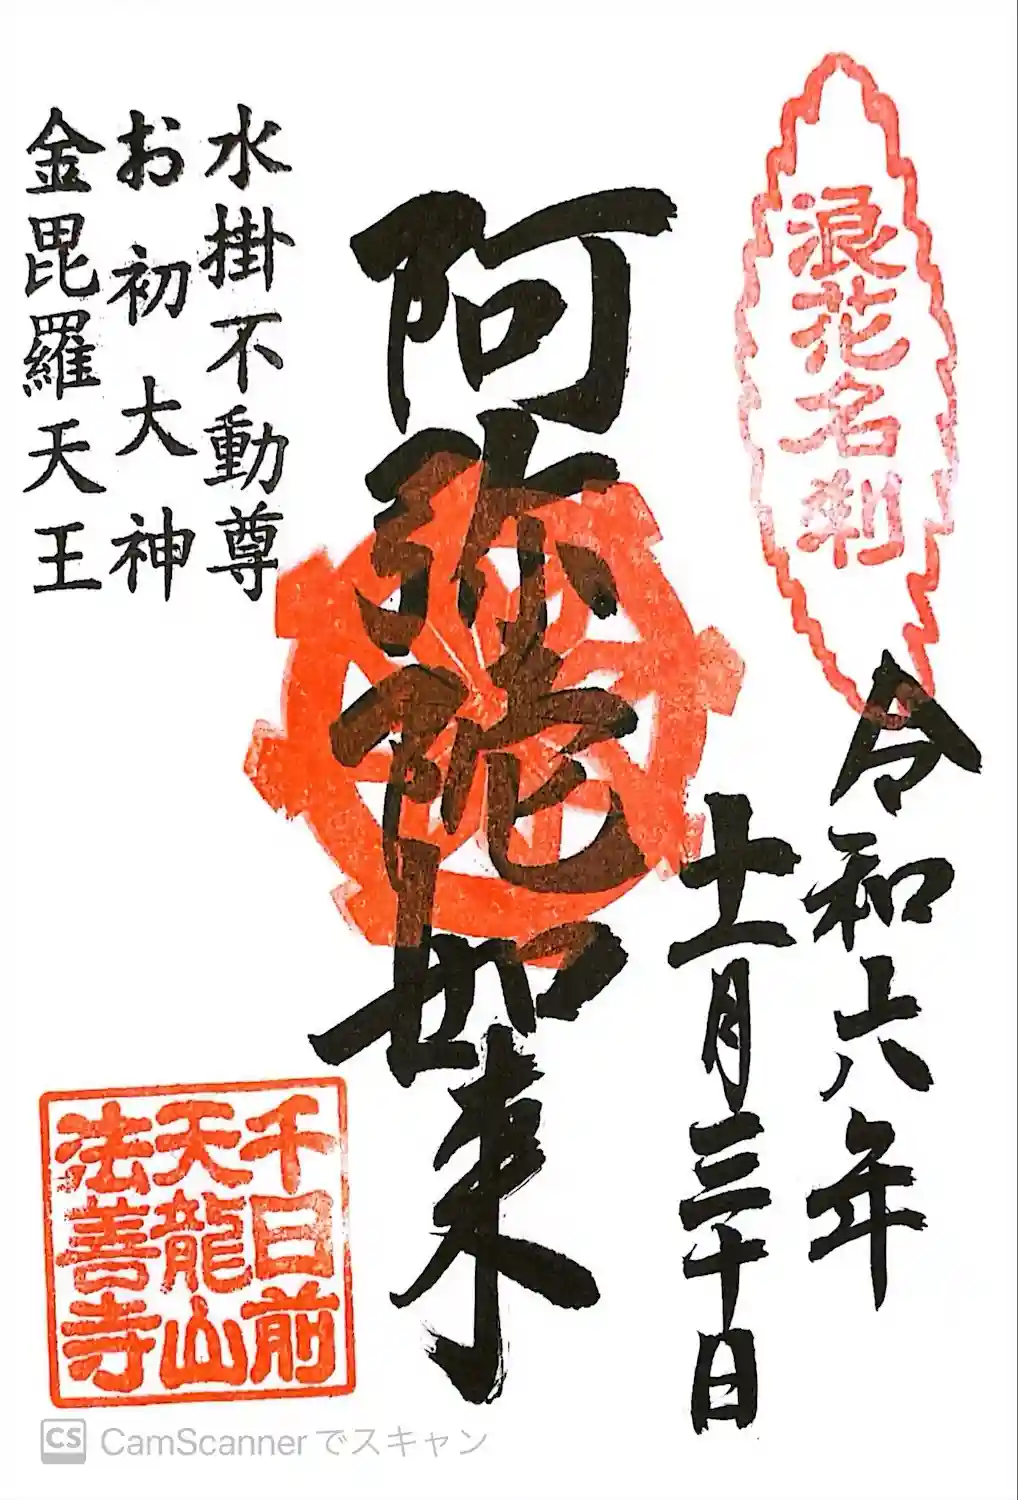 浪花名刹
令和六年
十一月三十日
阿弥陀如来
水掛不動尊
お初大神
金毘羅天王
千日前
天龍山
法善寺
CS CamScannerでスキャン